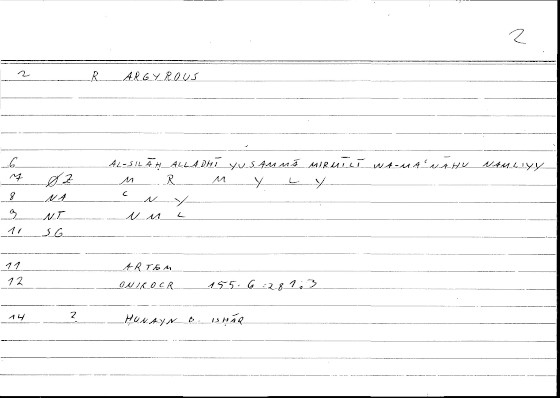 2
2 R ARGYROUS
6 AL-SILĀḤ ALLADHĪ YUSAMMĀ MIRMĪLĪ WA-MAʿNĀHU NAMLIYY
7 ØZ M R M Y L Y
8 NA ʿ N Y
9 NT N M L
10 SG
11 ARTEM
12 ONIROCR 155.6 :281.3
14 2 ḤUNAYN B. ISḤĀQ